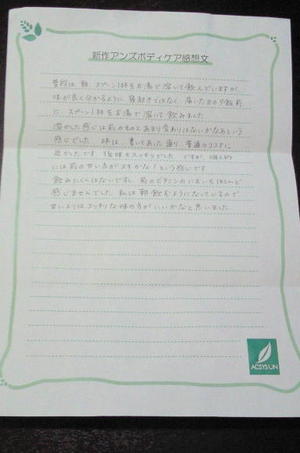 新作アンズボディケア感想文
普段は、朝、スプーン1杯をお湯で溶いて飲んでいますが、
味が良く分かるように、寝起きではなく、届いた日の夕飯前
に、スプーン1杯をお湯で溶いて飲みました。
溶かした感じは前のものとあまり変わりはないかなあという
感じでした。味は、書いてあった通り、普通のココアに
近かったです。後味もスッキリでした。ですが、個人的
には前の甘い方がスキかな！という感じです
飲みにくくはないですし、前のビタミンのにおいもほとんど
感じませんでした。私は朝飲むようになっているので
甘いよりはスッキリな味の方がいいかなと思いました。
ACSYSUN